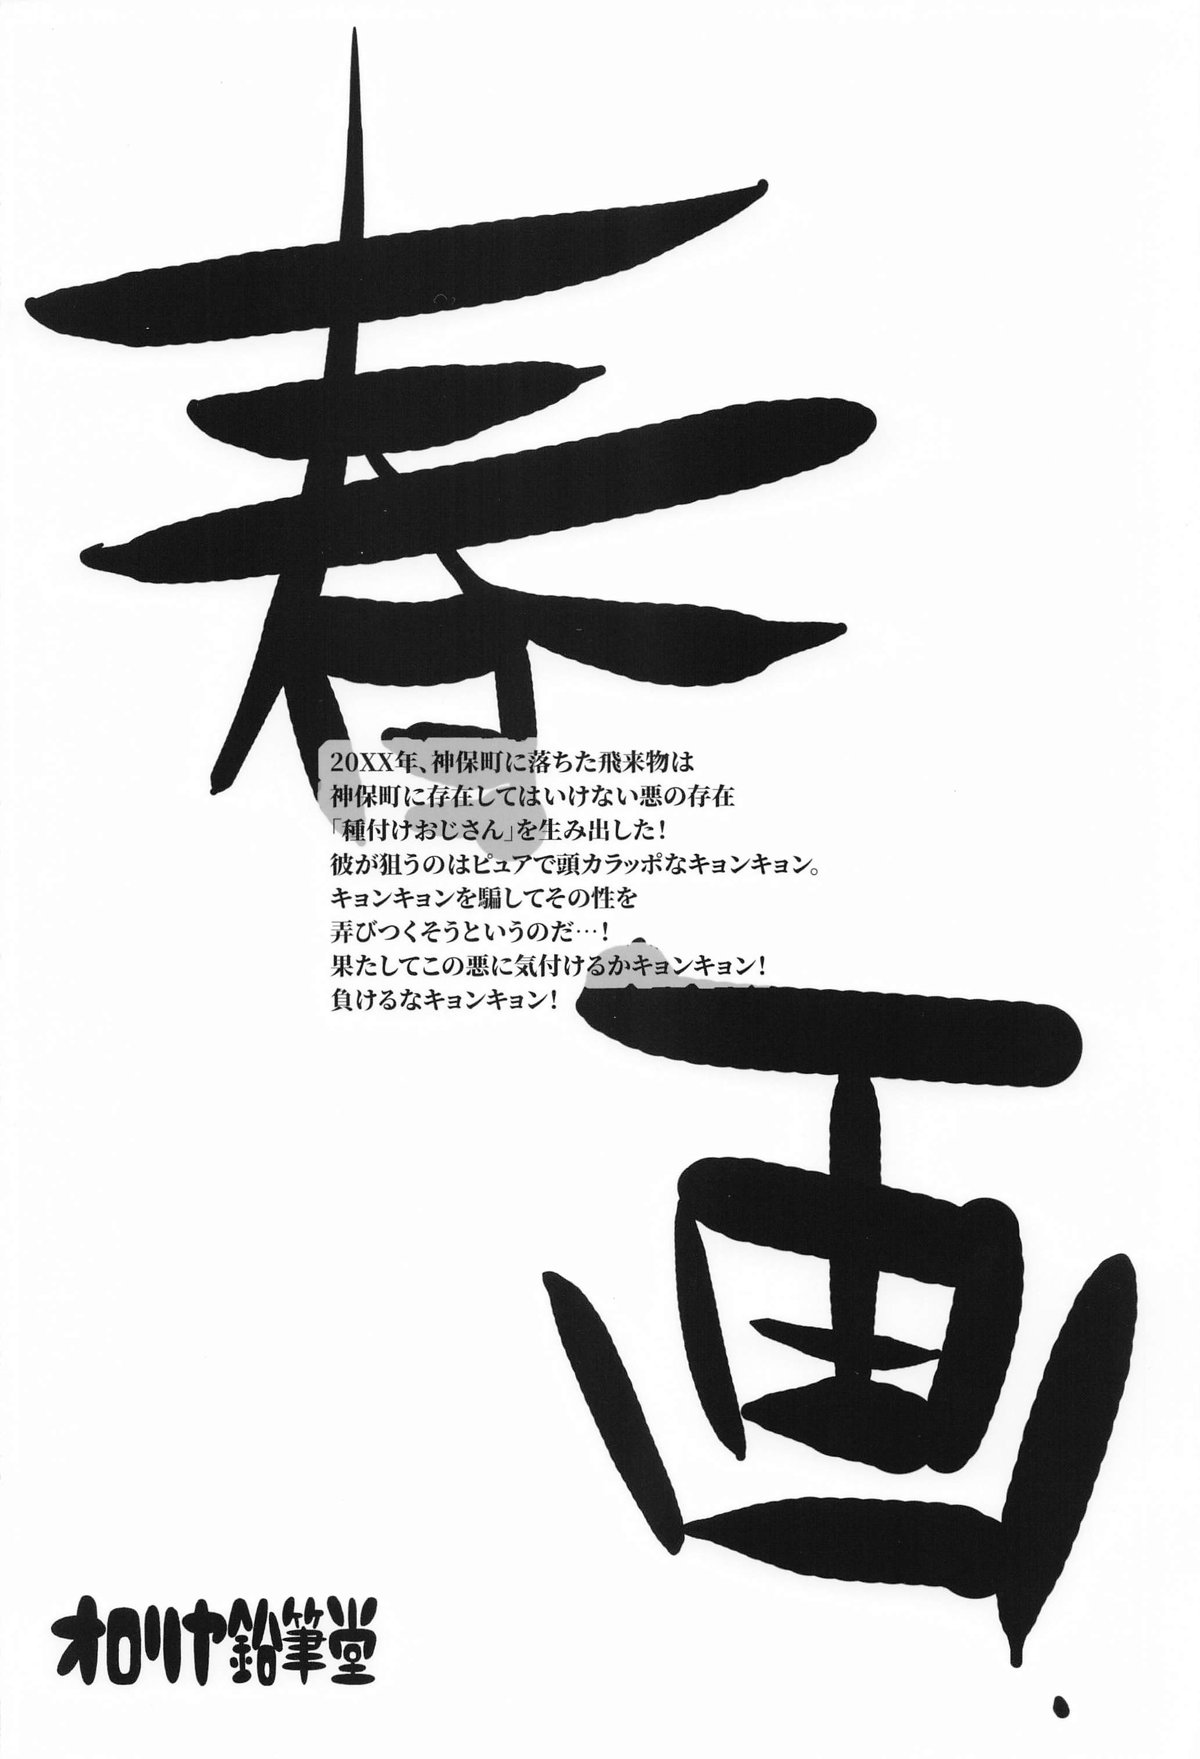 春画
20XX年、神保町に落ちた飛来物は
神保町に存在してはいけない悪の存在
「種付けおじさん」を生み出した！
彼が狙うのはピュアで頭カラッポなキョンキョン。
キョンキョンを騙してその性を
弄びつくそうというのだ…！
果たしてこの悪に気付けるかキョンキョン！
負けるなキョンキョン！
オロリヤ鉛筆堂